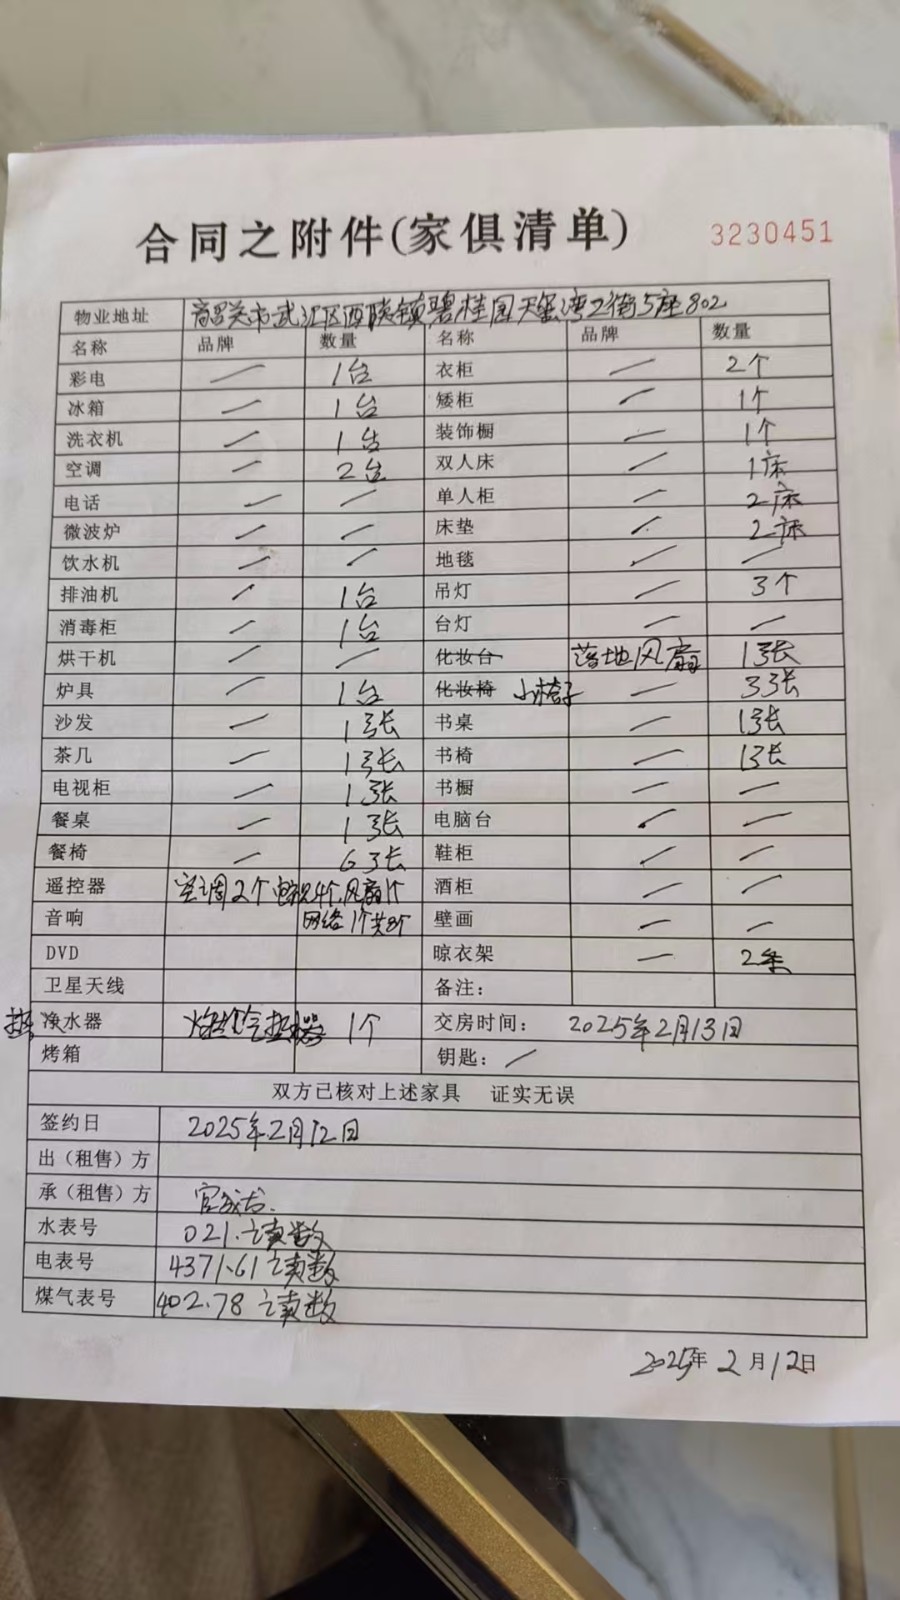 合同之附件(家俱清单) 3230451
物业地址 韶关市武江区西联镇碧桂园天玺湾二街5座802
名称 品牌 数量 名称 品牌 数量
彩电 — 1台 衣柜 — 2个
冰箱 — 1台 矮柜 — 1个
洗衣机 — 1台 装饰橱 — 1个
空调 — 2台 双人床 — 1床
电话 — — 单人柜 — 2床
微波炉 — — 床垫 — 2床
饮水机 — — 地毯 — —
排油机 — 1台 吊灯 — 3个
消毒柜 — 1台 台灯 — —
烘干机 — — 化妆台 落地风扇 1张
炉具 — 1台 化妆椅 小椅子 — 3张
沙发 — 1张 书桌 — 1张
茶几 — 1张 书椅 — 1张
电视柜 — 1张 书橱 — —
餐桌 — 1张 电脑台 — —
餐椅 — 6张 鞋柜 — —
遥控器 空调2个 电视4个,风扇1个 酒柜 — —
音响 网络1个共8个 壁画 — —
DVD 晾衣架 — 2条
卫星天线 备注:
热水器 1个 交房时间: 2025年2月13日
烤箱 钥匙: —
双方已核对上述家具 证实无误
签约日 2025年2月12日
出(租售)方
承(租售)方
水表号 021.读数
电表号 4371.61读数
煤气表号 402.78读数
2025年2月12日